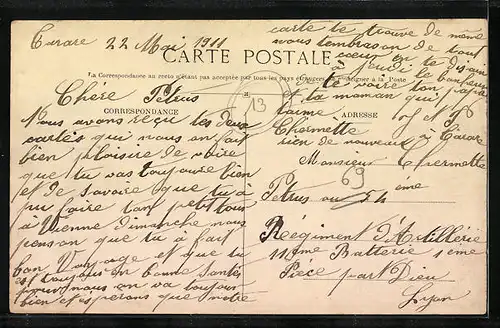 Tarare 22 Mai 1911
CARTE POSTALE
La Correspondance au recto n'étant pas acceptée par tous les pays
à la Poste
CORRESPONDANCE
ADRESSE
Chère Petrus
Nous avons recu les deux
cartes qui nous on fait
bien plaisire de voire
que tu vas toujoure bien
et de savoire que tu à
pu faire ton petit tour
à Vienne Dimanche nous
penson que tu à fait
bon Voyage et que tu
est toujours en bonne Santés
pour nous on va toujour
bien et esperons que notre
carte te trouve de meme
nous tembrason de tout
coeur en te disan
à jeudi le bonheur
te voire ton père
et ta maman qui
taime
Chermette
rien de nouveaux à Tarare
13
Monsieur Chermette
69
Petrus au 54 éme
Régiment d'Artillérie
11éme Batterie 1éme
Piéce part Dieu
Lyon